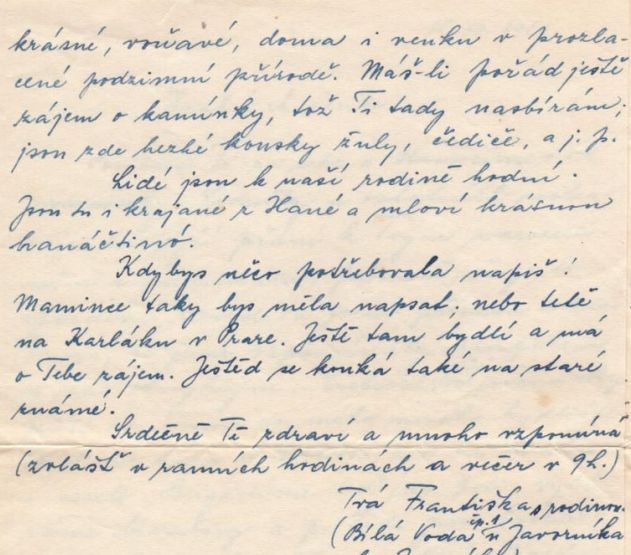 krásné, voňavé, doma i venku v prozla-
cené podzimní přírodě. Máš-li pořád ještě
zájem o kamínky, tož Ti tady nasbírám;
jsou zde hezké kousky žuly, čediče, a j. p.
Lidé jsou k naší rodině hodní.
Jsou tu i krajané z Hané a mloví krásnou
hanáčtinó.
Kdybys něco potřebovala napiš!
Mamince taky bys měla napsat; nebo tetě
na Karláku v Praze. Ještě tam bydlí a má
o Tebe zájem. Ještěd se kouká také na staré
známé.
Srdečně Tě zdraví a mnoho vzpomíná
(zvlášť v ranních hodinách a večer v 9h.)
Tvá Františka s rodinou.
(Bílá Voda čp. 1 u Javorníka